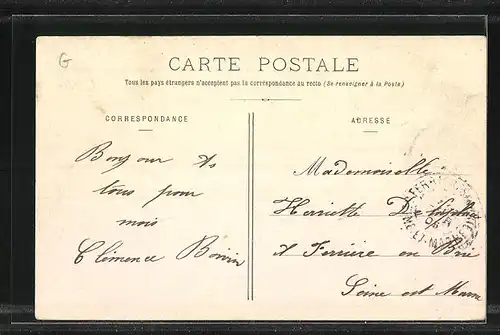 G
CARTE POSTALE
Tous les pays étrangers n'acceptent pas la correspondance au recto (Se renseigner à la Poste)
CORRESPONDANCE
Bonjour à
tous pour
mois
Clémence Boivin
ADRESSE
Mademoiselle
Henriette
à Ferrière en Brie
Seine est Marne